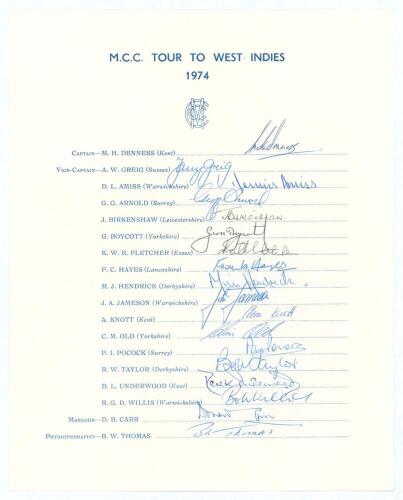 M.C.C. TOUR TO WEST INDIES
1974
MCC
CAPTAIN—M. H. DENNESS (Kent)
VICE-CAPTAIN—A. W. GREIG (Sussex) Tony Greig
D. L. AMISS (Warwickshire) Dennis Amiss
G. G. ARNOLD (Surrey) Geoff Arnold
J. BIRKENSHAW (Leicestershire)
G. BOYCOTT (Yorkshire) Geoff Boycott
K. W. R. FLETCHER (Essex) Keith Fletcher
F. C. HAYES (Lancashire) Frank Hayes
M. J. HENDRICK (Derbyshire) Mike Hendrick
J. A. JAMESON (Warwickshire) John Jameson
A. KNOTT (Kent) Alan Knott
C. M. OLD (Yorkshire) Chris Old
P. I. POCOCK (Surrey)
R. W. TAYLOR (Derbyshire) Bob Taylor
D. L. UNDERWOOD (Kent) Derek Underwood
R. G. D. WILLIS (Warwickshire) Bob Willis
MANAGER—D. B. CARR Donald Carr
PHYSIOTHERAPIST—B. W. THOMAS B. Thomas